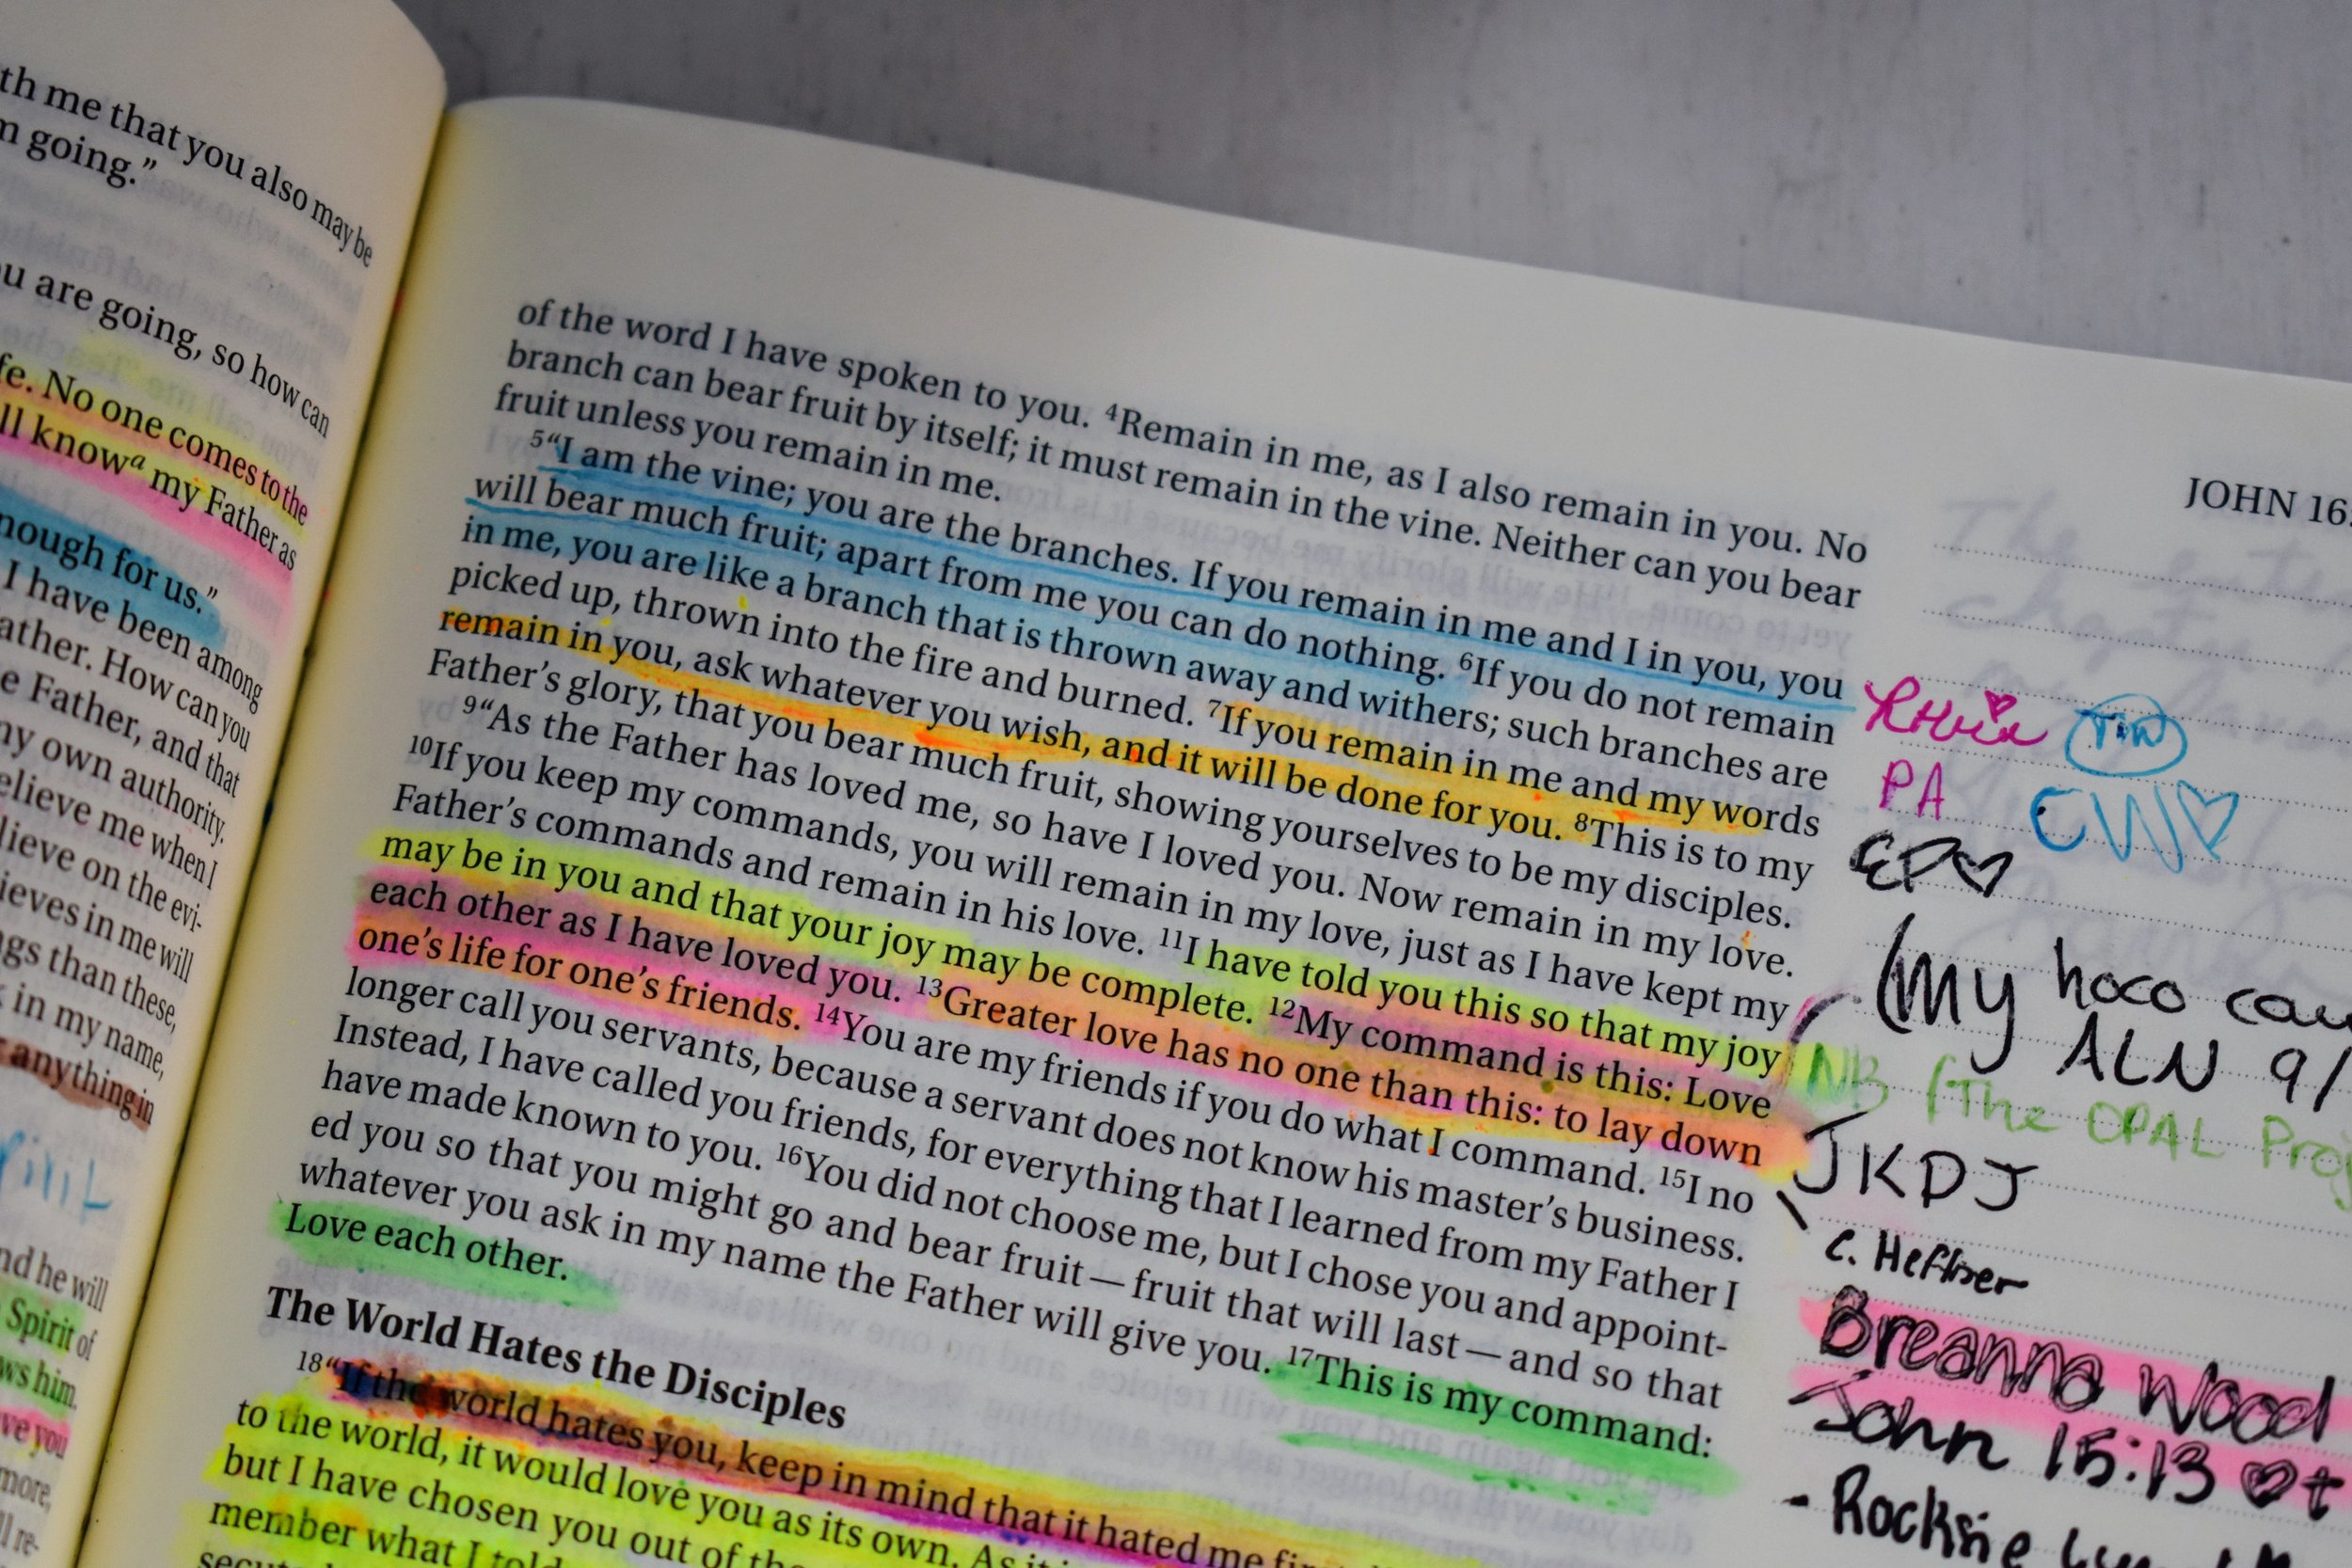 th me that you also may be
going.”
u are going, so how can
fe. No one comes to the
ll knowᵃ my Father as
nough for us.”
I have been among
ather. How can you
e Father, and that
ny own authority.
elieve me when I
lieve on the evi-
ieves in me will
ngs than these,
in my name,
anything in
nd he will
Spirit of
ws him.
ve you
more,
ll re-
JOHN 16
of the word I have spoken to you. ⁴Remain in me, as I also remain in you. No
branch can bear fruit by itself; it must remain in the vine. Neither can you bear
fruit unless you remain in me.
⁵“I am the vine; you are the branches. If you remain in me and I in you, you
will bear much fruit; apart from me you can do nothing. ⁶If you do not remain
in me, you are like a branch that is thrown away and withers; such branches are
picked up, thrown into the fire and burned. ⁷If you remain in me and my words
remain in you, ask whatever you wish, and it will be done for you. ⁸This is to my
Father’s glory, that you bear much fruit, showing yourselves to be my disciples.
⁹“As the Father has loved me, so have I loved you. Now remain in my love.
¹⁰If you keep my commands, you will remain in my love, just as I have kept my
Father’s commands and remain in his love. ¹¹I have told you this so that my joy
may be in you and that your joy may be complete. ¹²My command is this: Love
each other as I have loved you. ¹³Greater love has no one than this: to lay down
one’s life for one’s friends. ¹⁴You are my friends if you do what I command. ¹⁵I no
longer call you servants, because a servant does not know his master’s business.
Instead, I have called you friends, for everything that I learned from my Father I
have made known to you. ¹⁶You did not choose me, but I chose you and appoint-
ed you so that you might go and bear fruit — fruit that will last — and so that
whatever you ask in my name the Father will give you. ¹⁷This is my command:
Love each other.
The World Hates the Disciples
¹⁸“If the world hates you, keep in mind that it hated me first.
to the world, it would love you as its own. As it
but I have chosen you out of the
member what I told
PA
CW♡
EP♡
(My hoco
ALN 9/
NB (The OPAL Proj
JKDJ
c. Heffner
Breanna Wood
John 15:13 ♡
- Rocksie